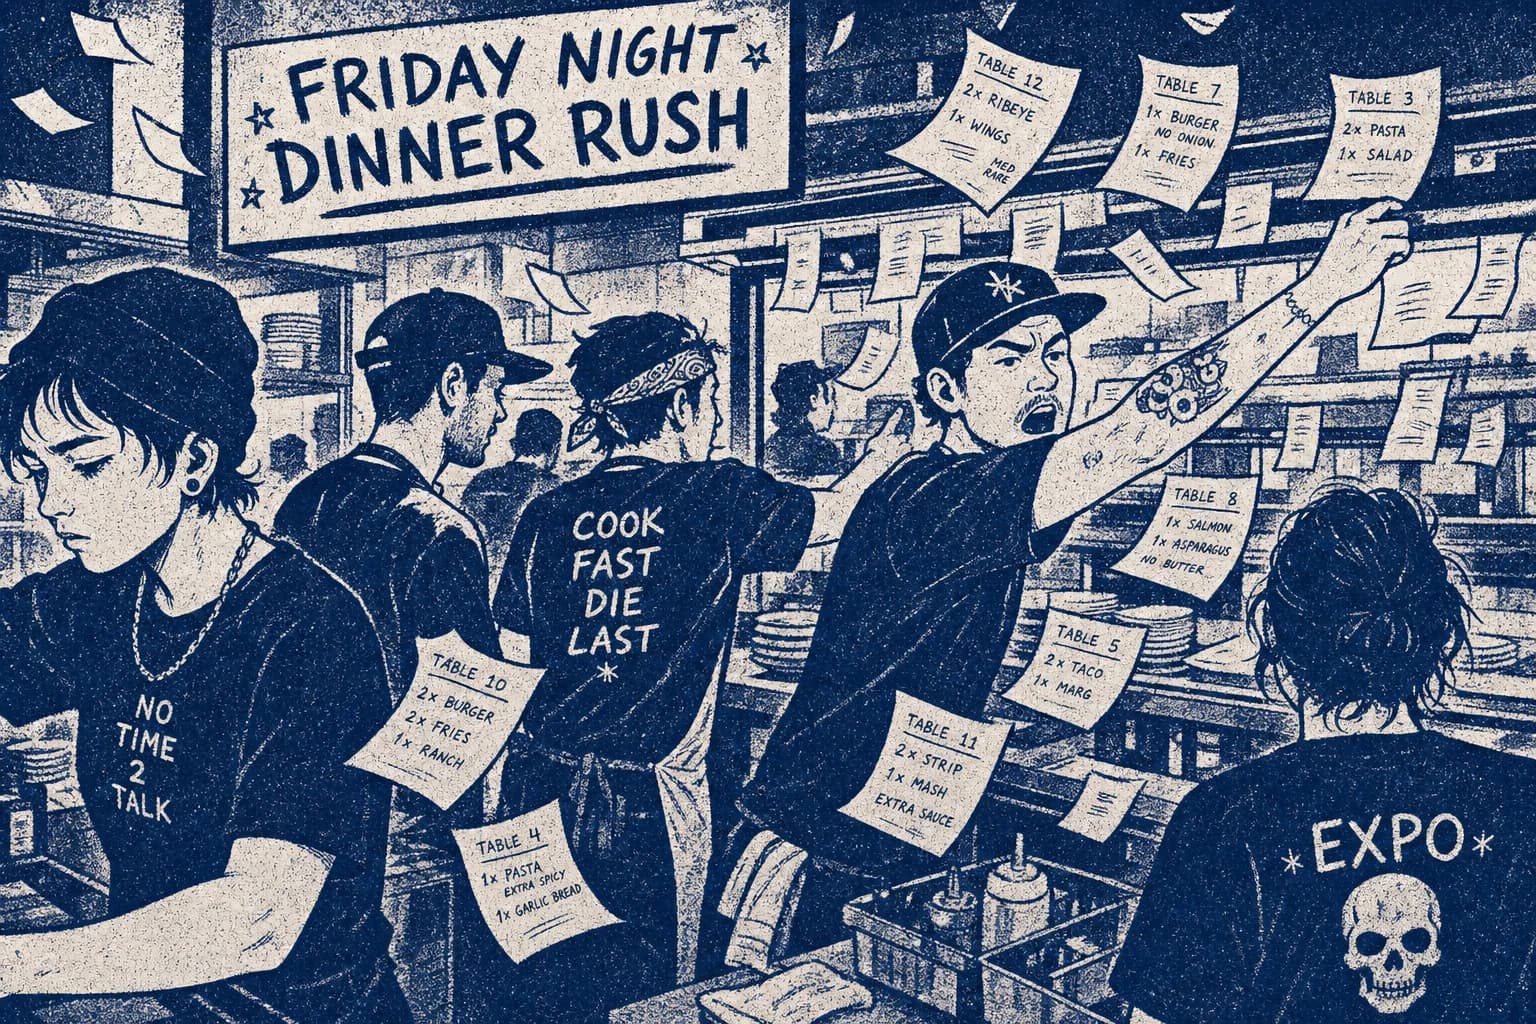 FRIDAY NIGHT
DINNER RUSH
TABLE 12
2x RIBEYE
1x WINGS
MED
RARE
TABLE 7
1x BURGER
NO ONION.
1x FRIES
TABLE 3
2x PASTA
1x SALAD
COOK
FAST
DIE
LAST
TABLE 8
1x SALMON
1x ASPARAGUS
NO BUTTER
TABLE 5
2x TACO
1x MARG
TABLE 10
2x BURGER
2x FRIES
1x RANCH
NO
TIME
2
TALK
TABLE 11
2x STRIP
1x MASH
EXTRA SAUCE
TABLE 4
1x PASTA
EXTRA SPICY
1x GARLIC BREAD
EXPO